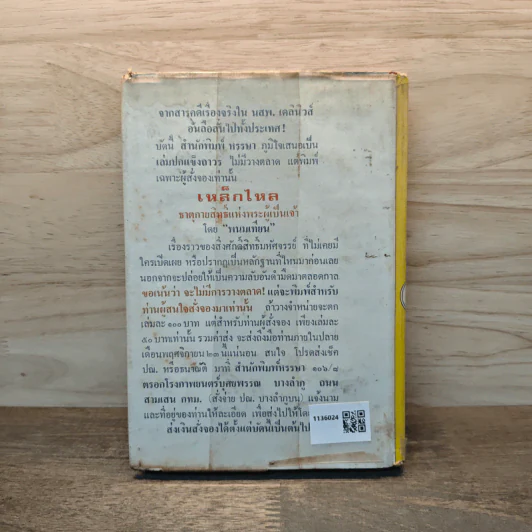 จากสารคดีเรื่องจริงใน นสพ. เดลินิวส์
อันลือลั่นไปทั่วประเทศ!
บัดนี้ สำนักพิมพ์ หรรษา ภูมิใจเสนอเป็น
เล่มปกแข็งถาวร ไม่มีวางตลาด แต่พิมพ์
เฉพาะผู้สั่งจองเท่านั้น
เหล็กไหล
ธาตุกายสิทธิ์แห่งพระผู้เป็นเจ้า
โดย "พนมเทียน"
เรื่องราวของสิ่งศักดิ์สิทธิ์มหัศจรรย์ ที่ไม่เคยมี
ใครเปิดเผย หรือปรากฏเป็นหลักฐานที่ไหนมาก่อนเลย
นอกจากจะปล่อยให้เป็นความลับอันดำมืดมาตลอดกาล
ขอเน้นว่า จะไม่มีการวางตลาด! แต่จะพิมพ์สำหรับ
ท่านผู้สนใจสั่งจองมาเท่านั้น ถ้าวางจำหน่ายจะตก
เล่มละ ๑๐๐ บาท แต่สำหรับท่านผู้สั่งจอง เพียงเล่มละ
๕๐ บาทเท่านั้น รวมค่าส่ง จะส่งถึงมือท่านภายในปลาย
เดือนพฤศจิกายน ๒๓ นี้แน่นอน สนใจ โปรดส่งเช็ค
ปณ. หรือธนาณัติ มาที่ สำนักพิมพ์หรรษา ๑๐๖/๘
ตรอกโรงภาพยนตร์บุศยพรรณ บางลำภู ถนน
สามเสน กทม. (สั่งจ่าย ปณ. บางลำภูบน) แจ้งนาม
และที่อยู่ของท่านให้ละเอียด เพื่อส่งไปให้
ส่งเงินสั่งจองได้ตั้งแต่บัดนี้เป็นต้นไป
1136024